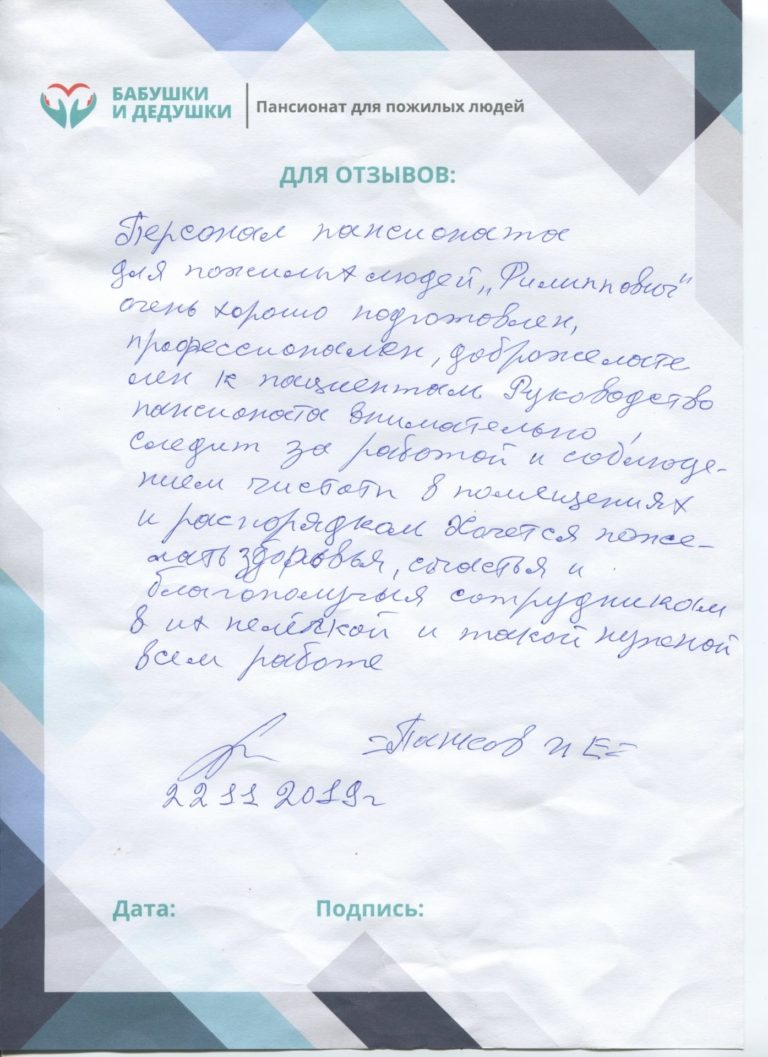 БАБУШКИ
И ДЕДУШКИ
Пансионат для пожилых людей
ДЛЯ ОТЗЫВОВ:
Персонал пансионата
для пожилых людей „Филиппович"
очень хорошо подготовлен,
профессионален, доброжелате
лен к пациентам Руководство
пансионата внимательно
следит за работой и соблюде-
нием чистоты в помещениях
и распорядком Хочется поже-
лать здоровья, счастья и
благополучия сотрудникам
в их нелёгкой и такой нужной
всем работе
И Е
22 11 2019г
Дата:
Подпись: